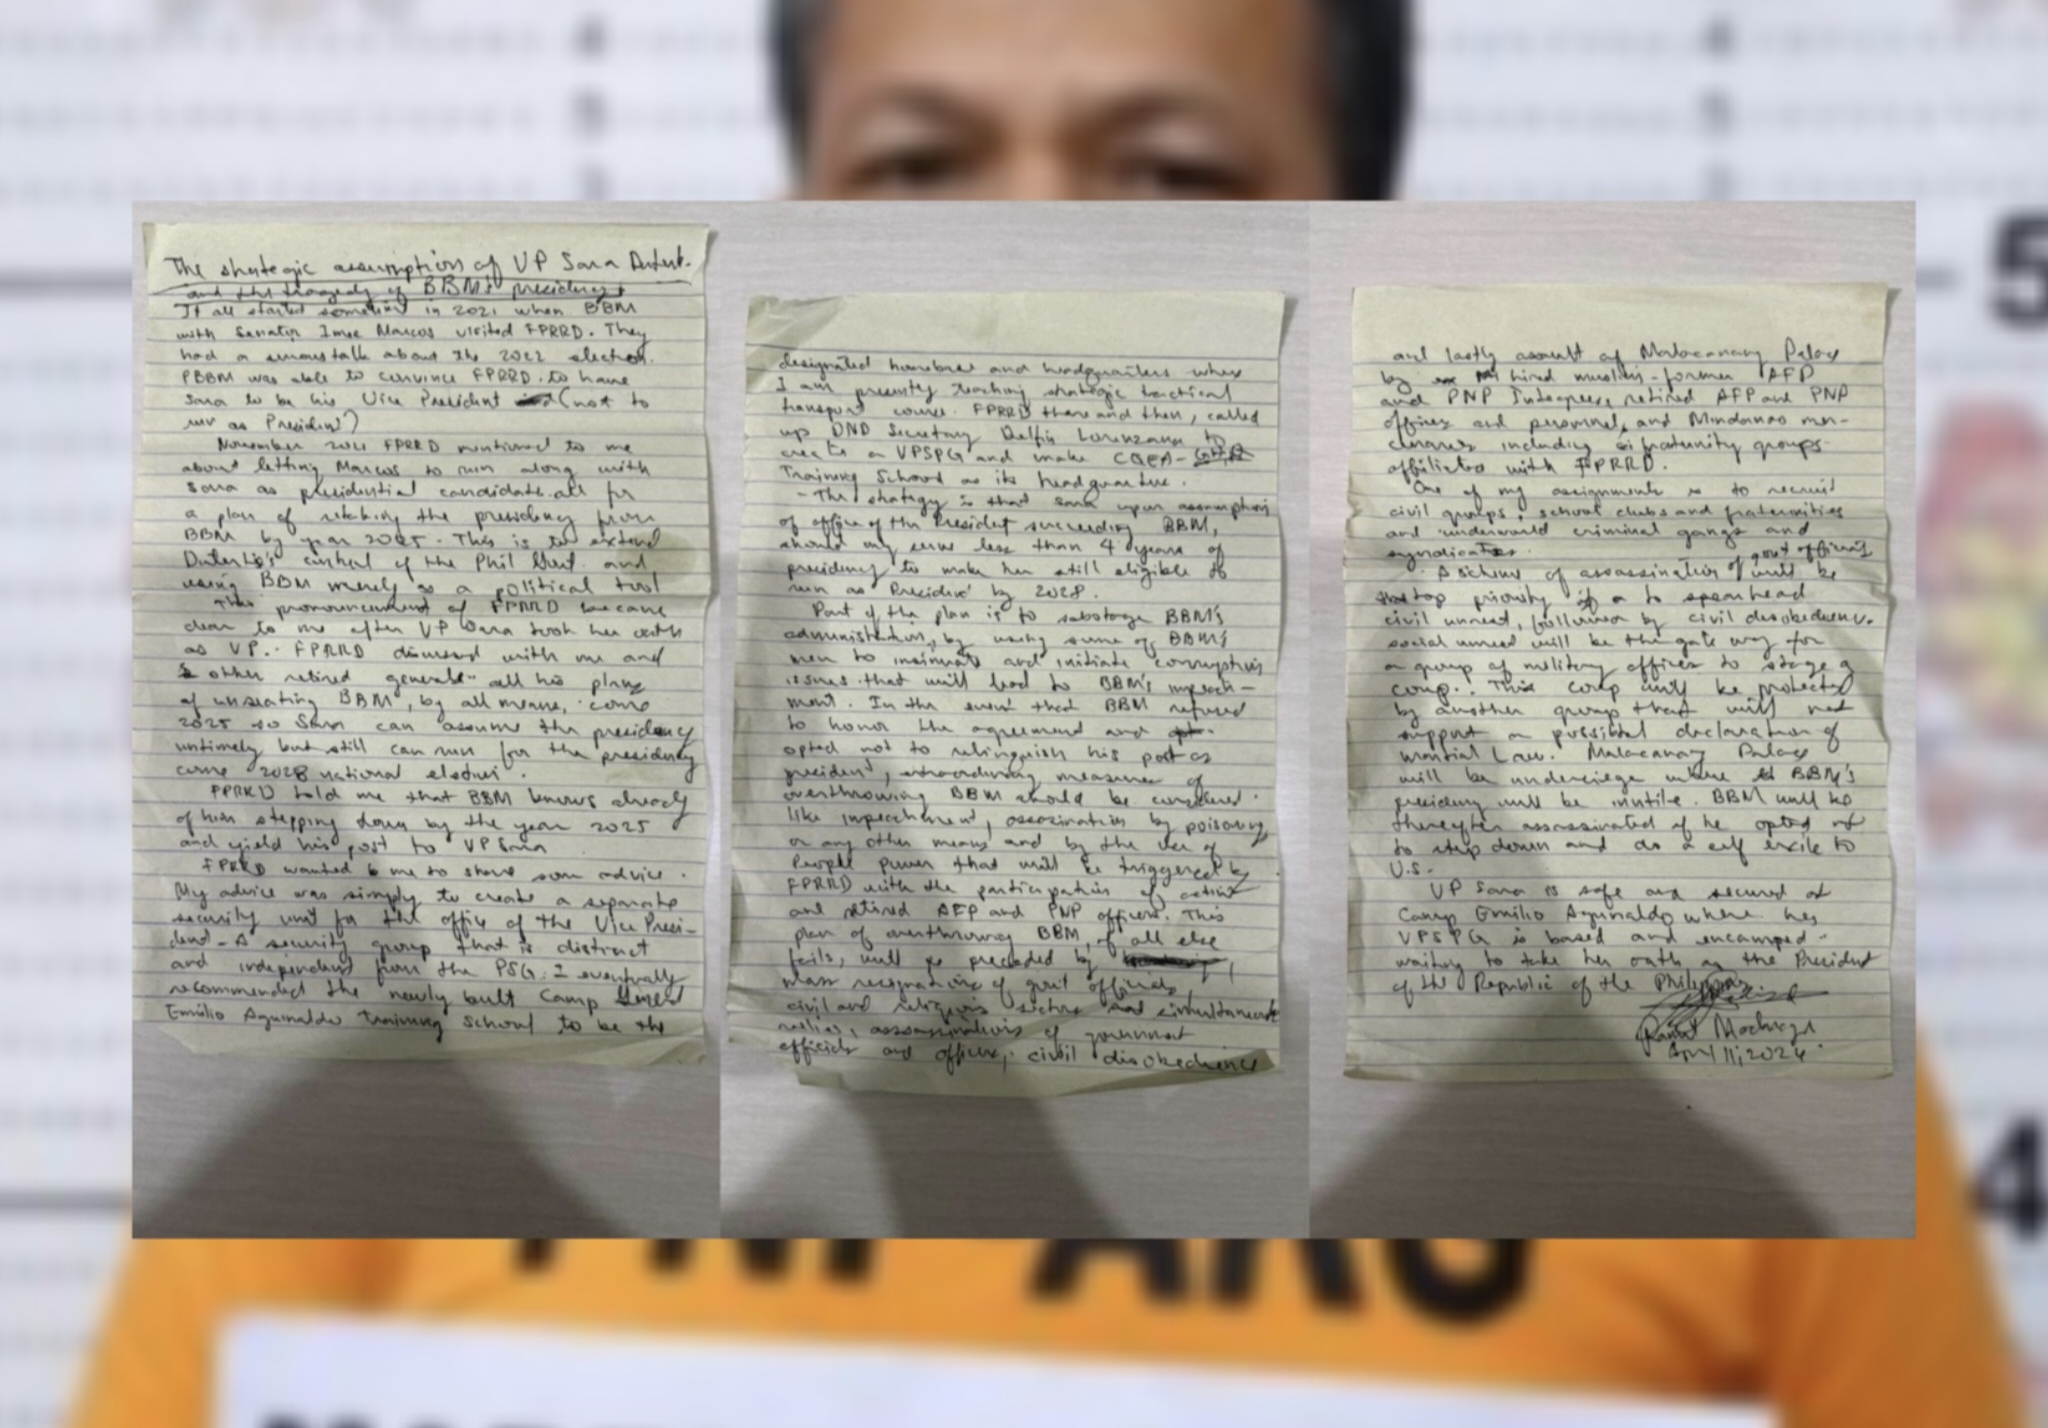 The strategic assumption of VP Sara Dutert.
and the tragedy of BBM's presidency
It all started sometime in 2021 when BBM
with Senator Imee Marcos visited FPRRD. They
had a serious talk about the 2022 election.
PBBM was able to convince FPRRD to have
Sara to be his Vice President (not to
run as President)
November 2021 FPRRD mentioned to me
about letting Marcos to run along with
Sara as presidential candidate all for
a plan of the presidency from
BBM by year 2025. This is to extend
Duterte's control of the Phil Govt. and
using BBM merely as a political tool
This pronouncement of FPRRD became
clear to me after VP Sara took her oath
as VP. FPRRD discussed with me and
other retired generals all his plans
of unseating BBM, by all means, come
2025 so Sara can assume the presidency
untimely but still can run for the presidency
come 2028 national election.
FPRRD told me that BBM knows already
of him stepping down by the year 2025
and yield his post to VP Sara
FPRRD wanted me to share some advice.
My advice was simply to create a separate
security unit for the office of the Vice Presi-
dent - A security group that is distinct
and independent from the PSG. I eventually
recommended the newly built Camp
Emilio Aguinaldo training school to be the
designated homebase and headquarters where
I am presently teaching strategic tactical
transport course. FPRRD there and then, called
up DND Secretary Delfin Lorenzana to
create a VPSPG and make CGEA-
Training School as its headquarters.
- The strategy is that Sara upon assumption
of office of the President succeeding BBM,
should only serve less than 4 years of
presidency to make her still eligible to
run as President by 2028.
Part of the plan is to sabotage BBM's
administration, by using some of BBM's
men to insinuate and initiate corruption
issues that will lead to BBM's impeach-
ment. In the event that BBM refused
to honor the agreement and
opted not to relinquish his post as
president, extraordinary measures of
overthrowing BBM should be considered.
like impeachment, assasination by poisoning
or any other means and by the use of
People power that will be triggered by
FPRRD with the participation of active
and retired AFP and PNP officers. This
plan of overthrowing BBM, if all else
fails, will be preceded by
mass resignation of govt officials,
civil and religious sectors and simultaneous
rallies, assassinations of government
officials and officers, civil disobedience
and lastly assault of Malacanang Palace
by hired muslim-former AFP
and PNP Integrees, retired AFP and PNP
officers and personnel, and Mindanao mer-
cenaries including fraternity groups
affiliated with FPRRD.
One of my assignments is to recruit
civil groups, school clubs and fraternities
and underworld criminal gangs and
syndicates.
A scheme of assassination of govt officials will be
top priority to spearhead
civil unrest, followed by civil disobedience.
social unrest will be the gate way for
a group of military officers to stage a
coup. This coup will be protected
by another group that will not
support a possible declaration of
martial Law. Malacanang Palace
will be undersiege where BBM's
presidency will be inutile. BBM will be
thereafter assassinated if he opted not
to step down and do a self exile to
U.S.
VP Sara is safe and secured at
Camp Emilio Aguinaldo where her
VPSPG is based and encamped -
waiting to take her oath as the President
of the Republic of the Philippines
April 11, 2024
5
4